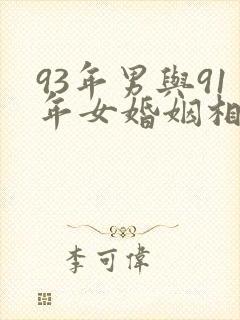 93年男與91
年女婚姻相
李可偉